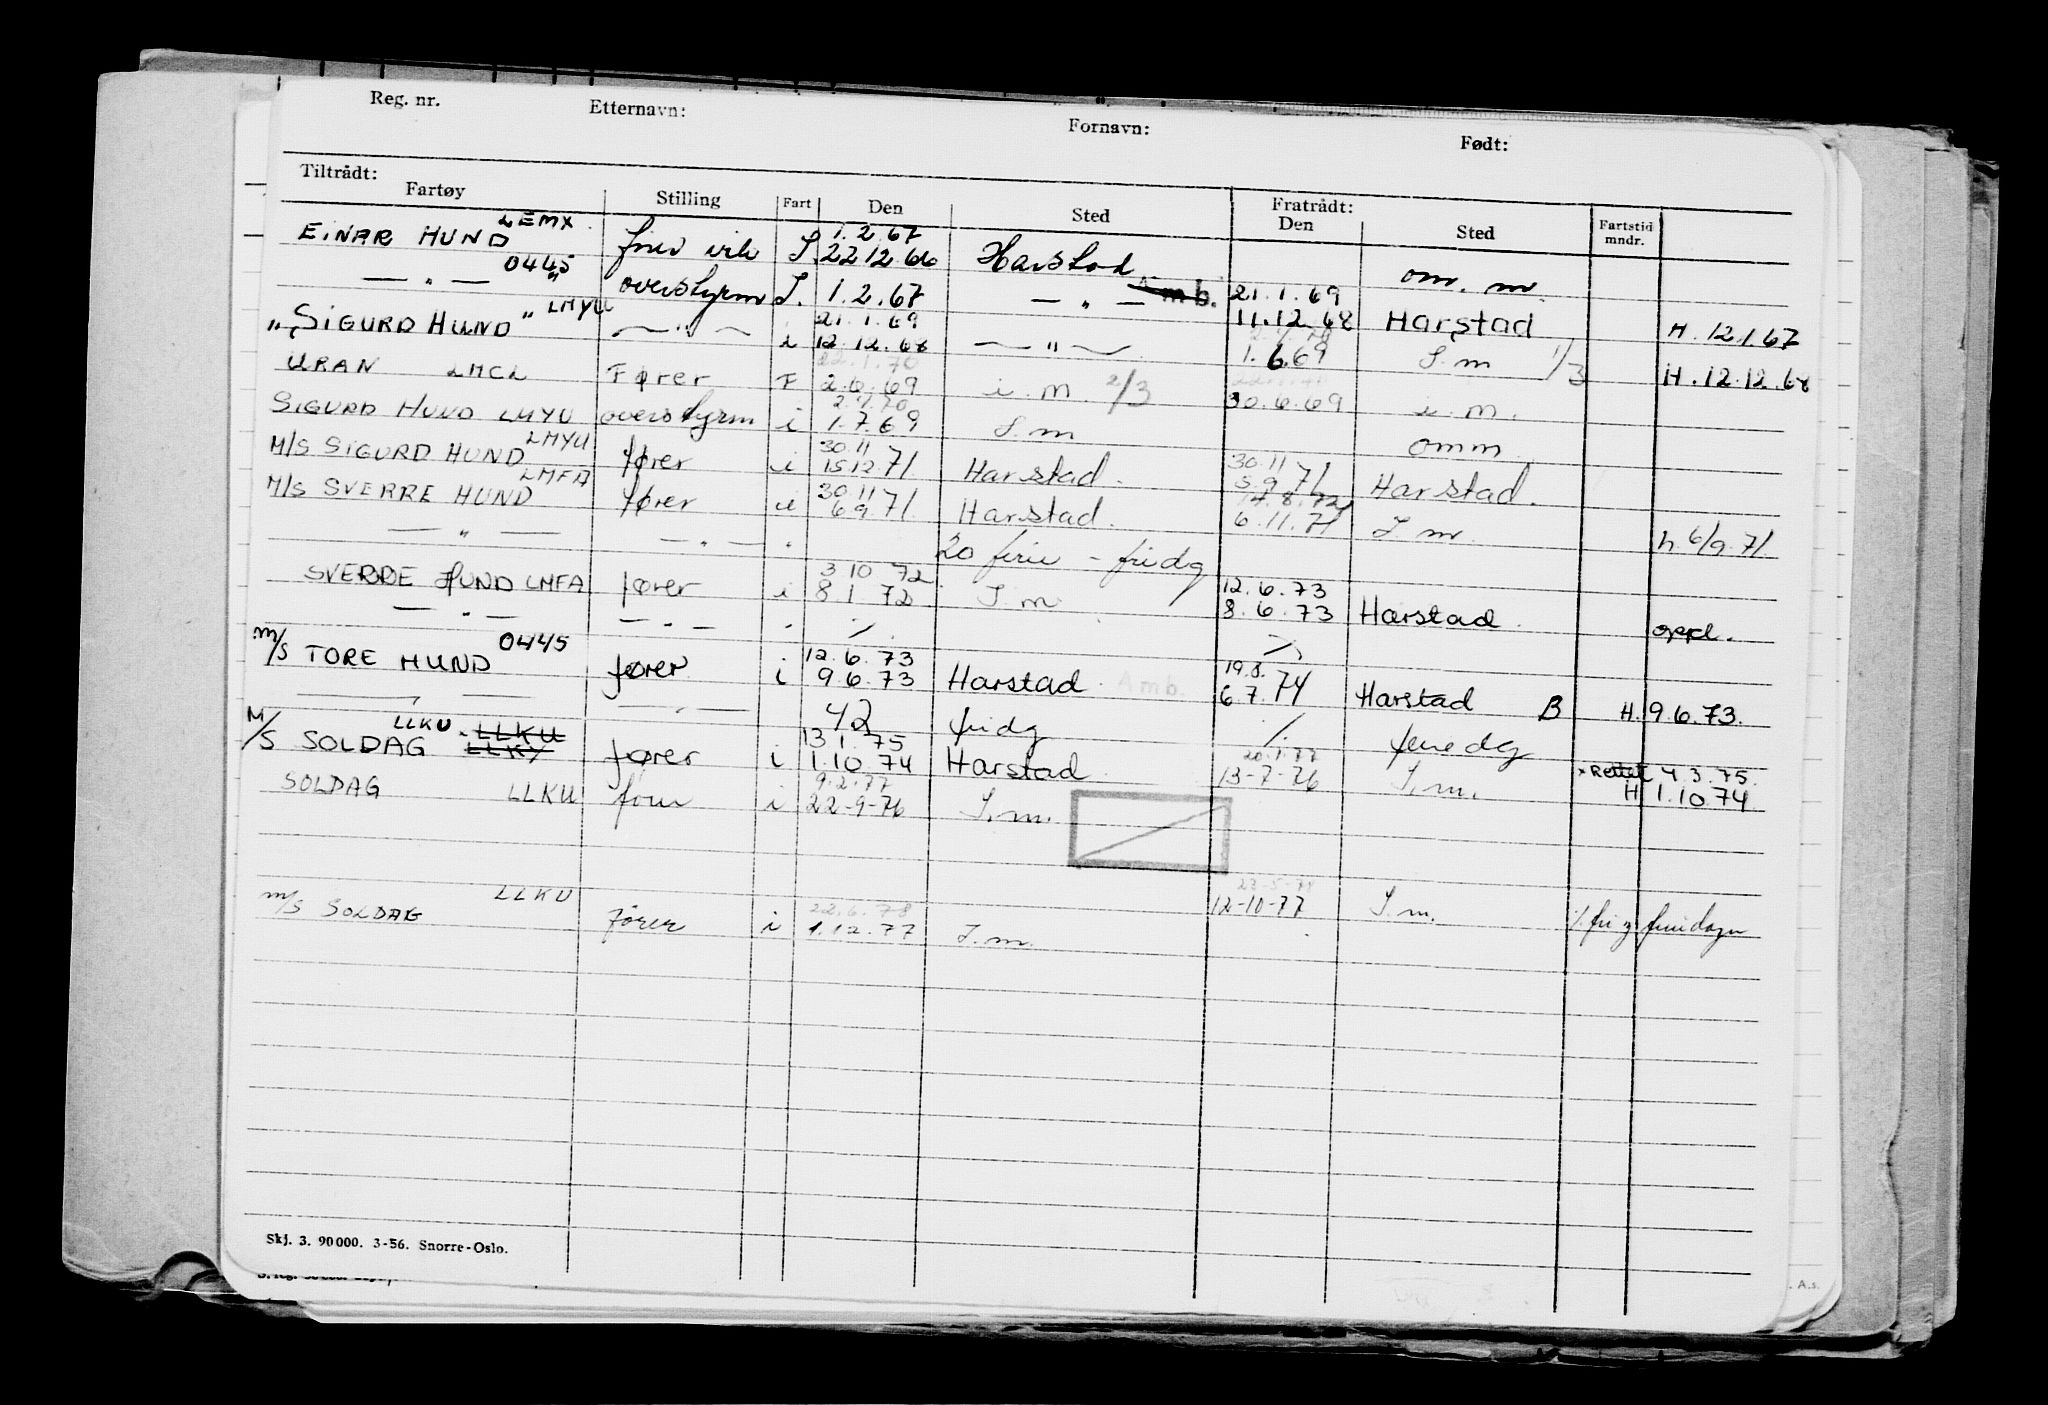 Reg. nr. Etternavn: Fornavn: Født:
Tiltrådt: Fratrådt:
Fartøy Stilling Fart Den Sted Den Sted Fartstid mndr.
LEMX 1.2.67
EINAR HUND S. 22 12 66 Harstad om. m.
0445
— " — overstyrm I. 1.2.67 — " — Amb. 21.1.69
LMYU 21.1.69 11.12.68 Harstad H. 12.1.67
"SIGURD HUND" — " — i 12.12.68 — " — 1.6.69 S.m 1/3
22.1.70 H. 12.12.68
URAN LMCL Fører F 2.6.69 i.m. 2/3 30.6.69 i.m.
2.7.70
SIGURD HUND LMYU overstyrm i 1.7.69 S.m omm
LMYU 30.11 30.11
M/S SIGURD HUND fører i 15.12.71 Harstad. 5.9.71 Harstad.
LMFA 30.11 14.8.72
M/S SVERRE HUND fører u 6.9.71. Harstad. 6.11.71 S.m. h 6/9.71.
— " — — " — " 20 ferie - fridg
3 10 72 12.6.73
SVERRE HUND LMFA fører i 8.1.72 S.m 8.6.73 Harstad. oppl.
— " — — " — " ./. ./.
0445 12.6.73 19.8.
m/s TORE HUND fører i 9.6.73 Harstad Amb. 6.7.74 Harstad B H. 9.6.73.
— " — — " — 42 fridg ./. feriedg
LLKU. LLKU 13 1.75 20.1.77
M/S SOLDAG LLKY fører i 1.10.74 Harstad 13-7-76 S.m. x Rettet 4.3.75.
9.2.77 H 1.10.74
SOLDAG LLKU fører i 22-9-76 S.m.
23-5-78
LLKU 22.6.78 12-10-77 S.m. ./. fri
m/s SOLDAG fører i 1.12.77 S.m.
Skj. 3. 90 000. 3-56. Snorre-Oslo.
A.s.